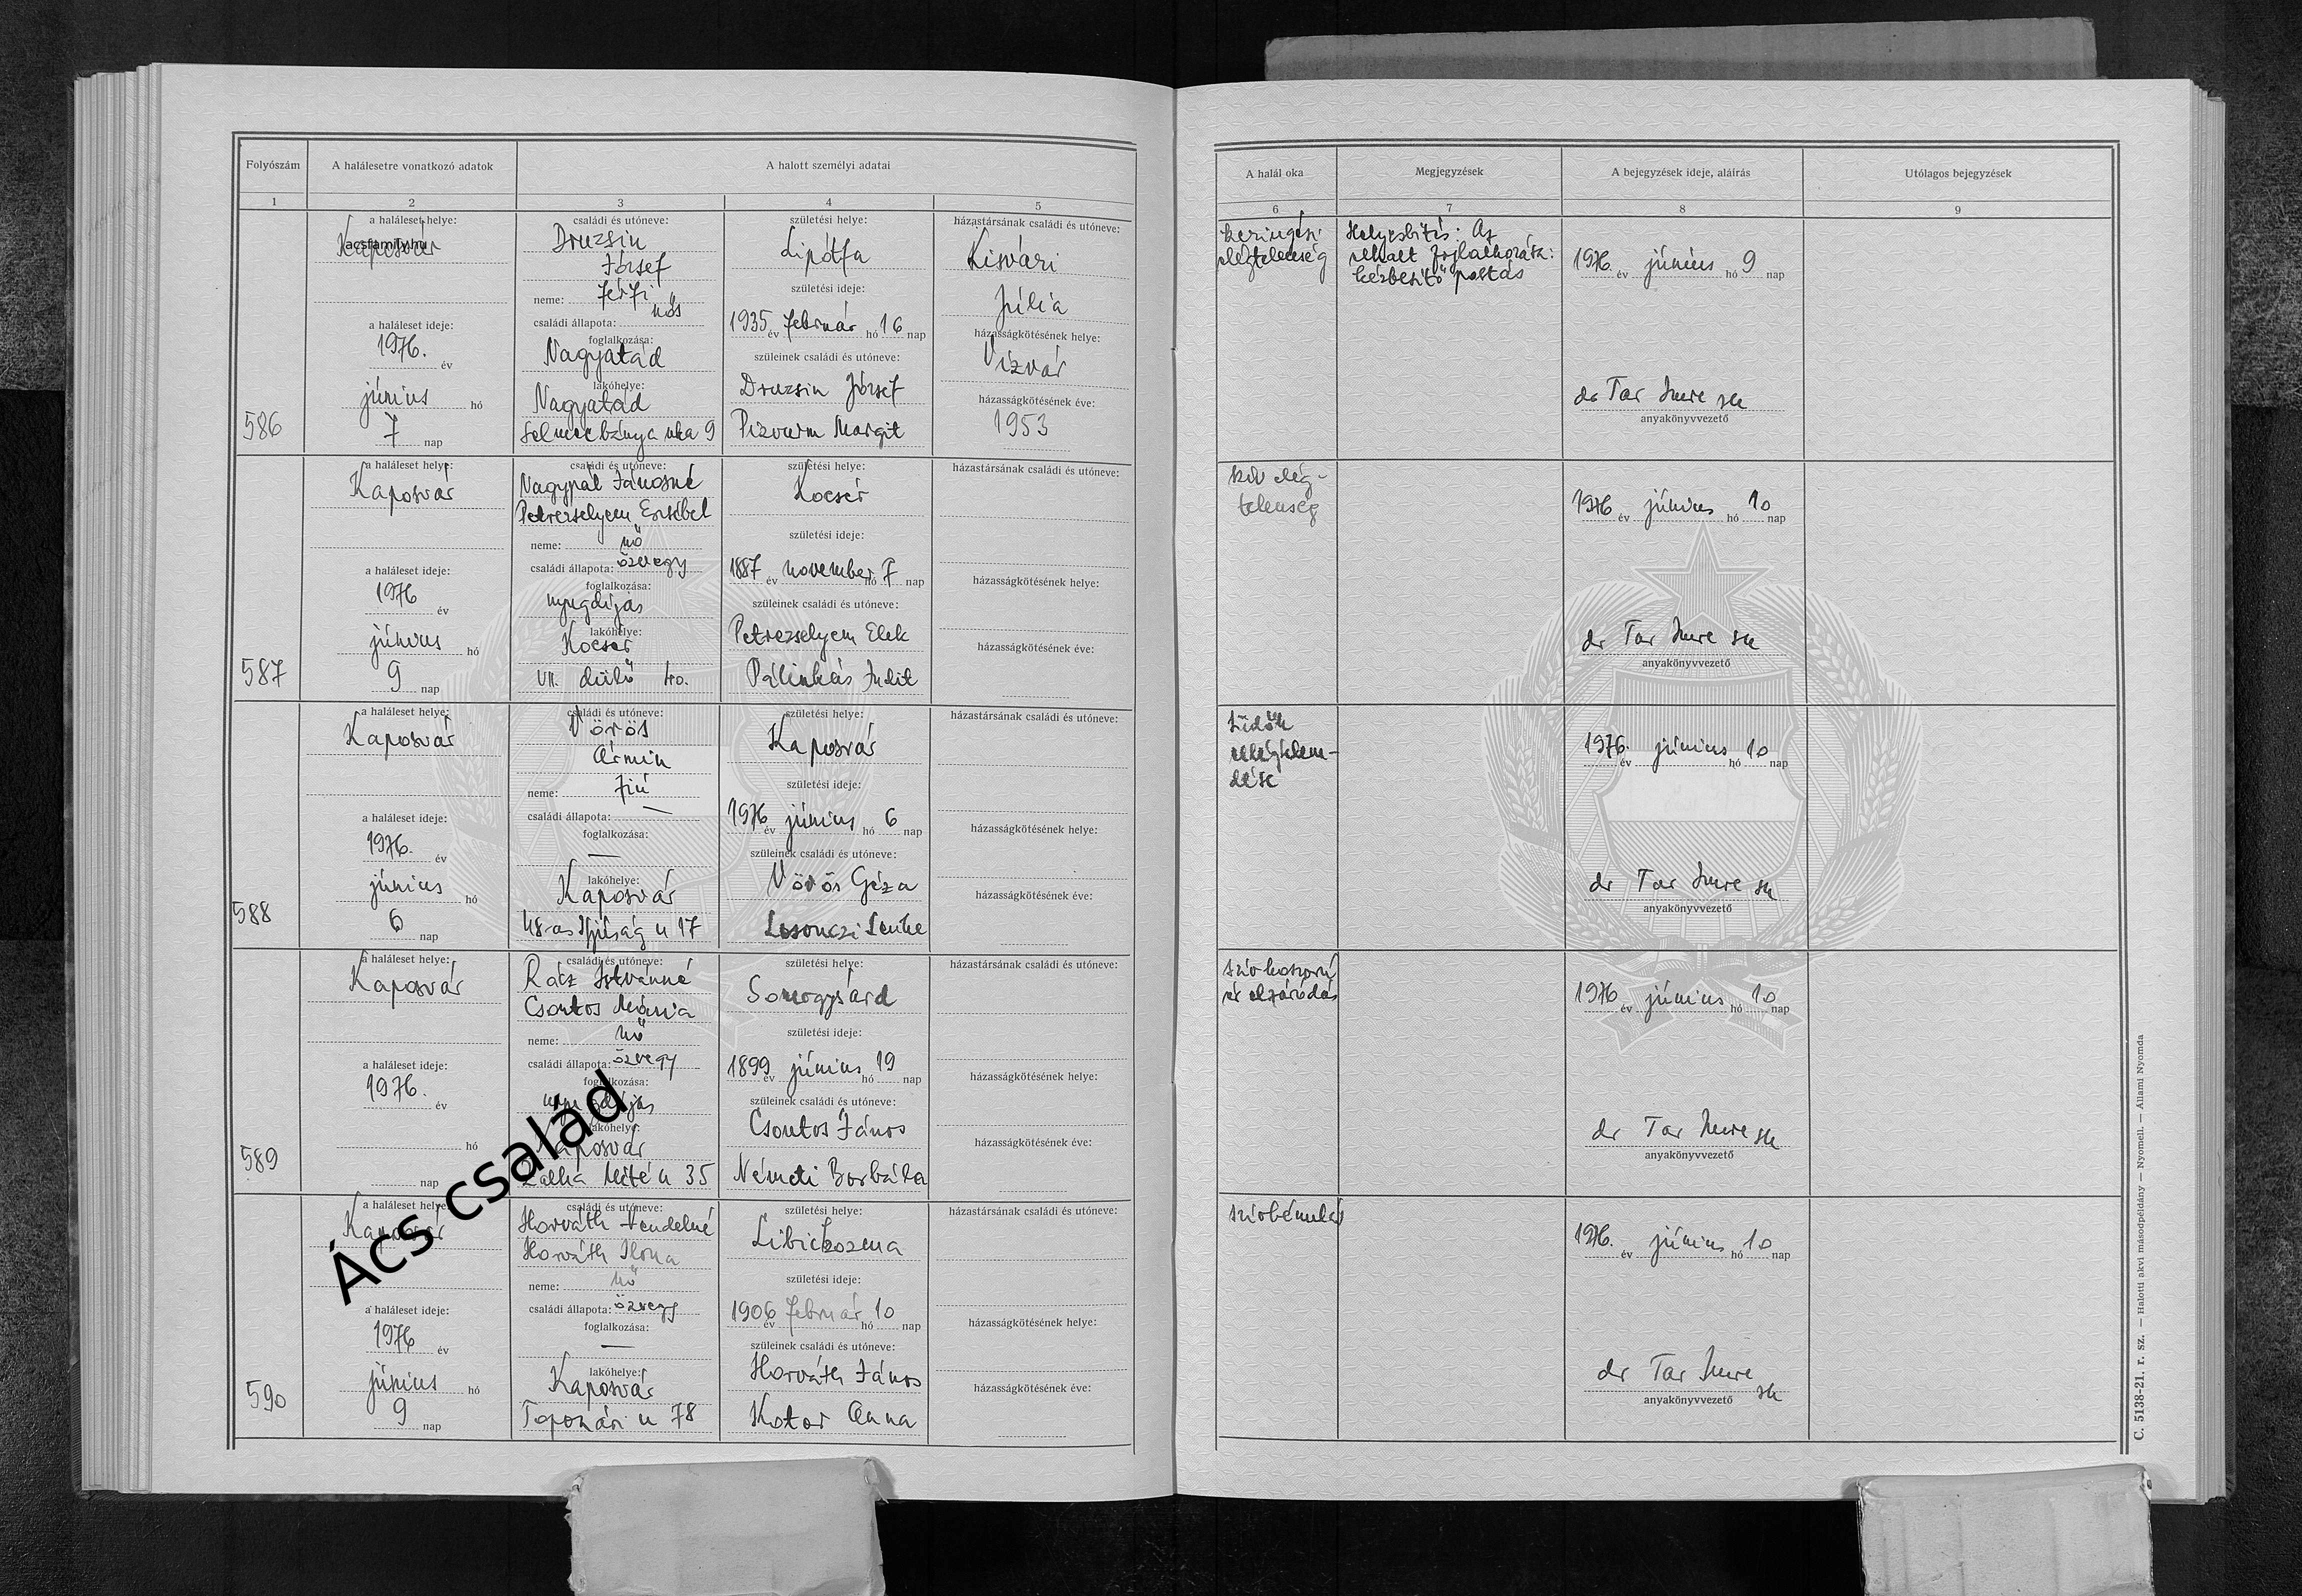 Folyószám
A halálesetre vonatkozó adatok
A halott személyi adatai
1
2
3
4
5
a haláleset helye:
Kaposvár
acsfamily.hu
a haláleset ideje:
1976. év
június hó
7 nap
586
családi és utóneve:
Druzsin
József
neme: férfi
családi állapota: nős
foglalkozása:
Nagyatád
lakóhelye:
Nagyatád
Selmecbánya utca 9
születési helye:
Lipótfa
születési ideje:
1935 év február hó 16 nap
szüleinek családi és utóneve:
Druzsin József
Margit
házastársának családi és utóneve:
Kisvári
Júlia
házasságkötésének helye:
Vízvár
házasságkötésének éve:
1953
a haláleset helye:
Kaposvár
a haláleset ideje:
1976 év
június hó
9 nap
587
családi és utóneve:
Nagypál Jánosné
Petrezselyem Erzsébet
neme: nő
családi állapota: özvegy
foglalkozása:
nyugdíjas
lakóhelye:
Kocsér
VII. dülő 40.
születési helye:
Kocsér
születési ideje:
1887 év november hó 7 nap
szüleinek családi és utóneve:
Petrezselyem Elek
Pálinkás Judit
házastársának családi és utóneve:
házasságkötésének helye:
házasságkötésének éve:
a haláleset helye:
Kaposvár
a haláleset ideje:
1976. év
június hó
6 nap
588
családi és utóneve:
Vörös
Ármin
neme: fiú
családi állapota: —
foglalkozása:
—
lakóhelye:
Kaposvár
48-as Ifjúság u 17
születési helye:
Kaposvár
születési ideje:
1976 év június hó 6 nap
szüleinek családi és utóneve:
Vörös Géza
Losonczi Lenke
házastársának családi és utóneve:
házasságkötésének helye:
házasságkötésének éve:
a haláleset helye:
Kaposvár
a haláleset ideje:
1976. év
hó
nap
589
családi és utóneve:
Rácz Istvánné
Csontos Mária
neme: nő
családi állapota: özvegy
foglalkozása:
nyugdíjas
lakóhelye:
Kaposvár
Zalka Máté u 35
születési helye:
Somogysárd
születési ideje:
1899 év június hó 19 nap
szüleinek családi és utóneve:
Csontos János
Németi Borbála
házastársának családi és utóneve:
házasságkötésének helye:
házasságkötésének éve:
a haláleset helye:
Kaposvár
a haláleset ideje:
1976 év
június hó
9 nap
590
családi és utóneve:
Horváth Vendelné
Horváth Ilona
neme: nő
családi állapota: özvegy
foglalkozása:
—
lakóhelye:
Kaposvár
Toponári u 78
születési helye:
Libickozma
születési ideje:
1906 év február hó 10 nap
szüleinek családi és utóneve:
Horváth János
Kotor Anna
házastársának családi és utóneve:
házasságkötésének helye:
házasságkötésének éve:
Ács család
A halál oka
Megjegyzések
A bejegyzések ideje, aláírás
Utólagos bejegyzések
6
7
8
9
keringési
elégtelenség
Helyesbítés: Az
elhalt foglalkozása:
kézbesítő postás
1976. év június hó 9 nap
dr Tar Imre sk
anyakönyvvezető
szív elég-
telenség
1976 év június hó 10 nap
dr Tar Imre sk
anyakönyvvezető
Tüdők
1976. év június hó 10 nap
dr Tar Imre sk
anyakönyvvezető
szívkoszorú
ér elzáródás
1976 év június hó 10 nap
dr Tar Imre sk
anyakönyvvezető
szívbénulás
1976. év június hó 10 nap
dr Tar Imre sk
anyakönyvvezető
C. 5138-21. r. sz. — Halotti akvi másodpéldány — Nyomell. — Állami Nyomda